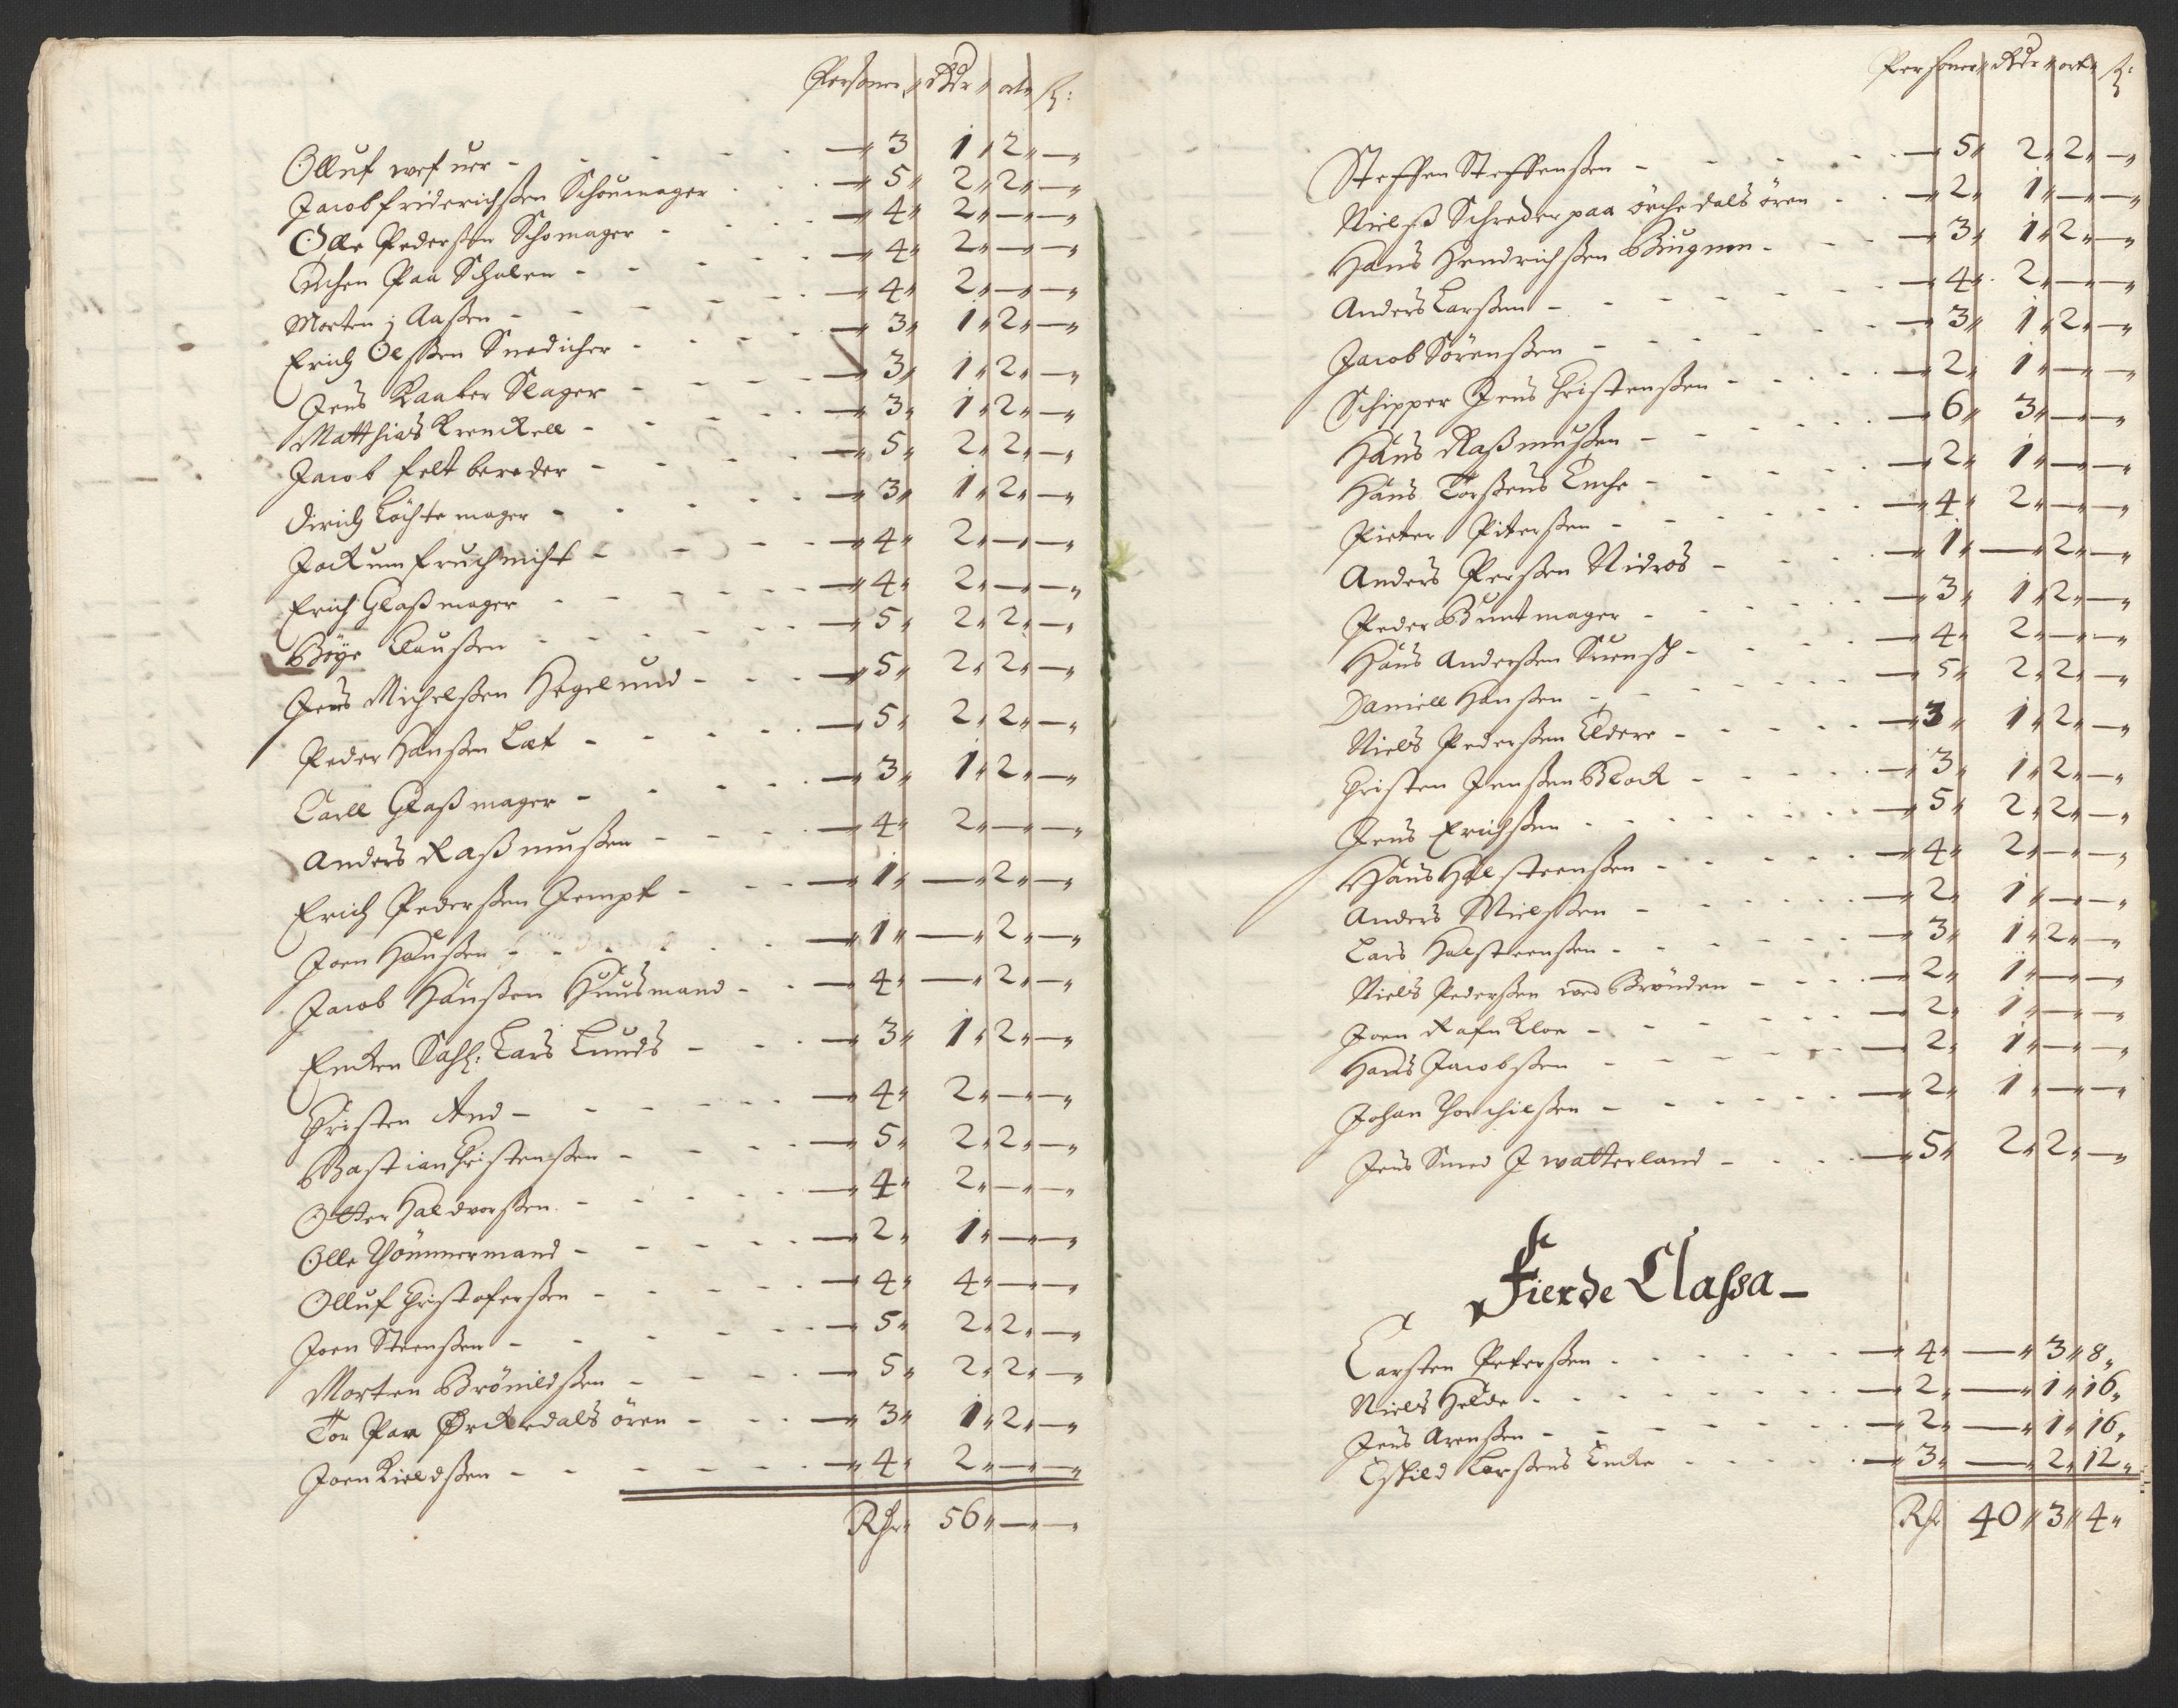 Personer Rdr ort ß:
Olluf wefuer - 3 1 2 -
Jacob friderichßen Schoumager - 5 2 2 -
Olle Pederßen Schomager - 4 2 - -
Enchen Paa Schalen - 4 2 - -
Morten i Aaßen - 4 2 - -
Erich Olßen Snedicher - 3 1 2 -
Jens Kaaber Slager - 3 1 2 -
Matthias Krenckell - 3 1 2 -
Jacob felt bereder - 5 2 2 -
Dirich Löchte mager - 3 1 2 -
Jockum fruchnicht - 4 2 - -
Erich Glaßmager - 4 2 - -
Böye Claußen - 5 2 2 -
Jens Michelßen Hegelund - 5 2 2 -
Peder Hanßen Lax - 5 2 2 -
Carll Glaßmager - 3 1 2 -
Anders Raßmußen - 4 2 - -
Erich Pederßen Jempt - 1 - 2 -
Joen Hanßen - 1 - 2 -
Jacob Hanßen Huusmand - 4 - 2 -
Encken Sahl: Lars Lunds - 3 1 2 -
Christen And - 4 2 - -
Bastian Christenßen - 5 2 2 -
Otter Haldvorßen - 4 2 - -
Olle Thömmermand - 2 1 - -
Olluf Christoferßen - 4 4 - -
Joen Steenßen - 5 2 2 -
Morten Brönildßen - 5 2 2 -
Tor Paa Örckedals ören - 3 1 2 -
Joen Kieldßen - 4 2 - -
Rdr 56 - -
Personer Rdr ort ß
Steffen Steffenßen - 5 2 2 -
Nielß Schreder paa örchedals ören - 2 1 - -
Hans Hendrichßen Biugnen - 3 1 2 -
Anders Larßen - 4 2 - -
Jacob Sörenßen - 3 1 2 -
Schipper Jens Christenßen - 2 1 - -
Hans Raßmußen - 6 3 - -
Hans Torßens Enche - 2 1 - -
Pieter Piterßen - 4 2 - -
Anders Perßen Nidros - 1 - 2 -
Peder Buntmager - 3 1 2 -
Hans Anderßen Suensch - 4 2 - -
Daniell Hanßen - 5 2 2 -
Niels Pederßen Eldere - 3 1 2 -
Christen Jenßen Block - 3 1 2 -
Jens Erichßen - 5 2 2 -
Hans Halsteenßen - 4 2 - -
Anders Nielßen - 2 1 - -
Lars Halsteenßen - 3 1 2 -
Niels Pederßen wed Brönden - 2 1 - -
Joen Rafn Kloe - 2 1 - -
Hans Jacobßen - 2 1 - -
Johan Thorchilßen - 2 1 - -
Jens Smed J watterland - 5 2 2 -
Fierde Classa -
Carsten Peterßen - 4 - 3 8
Niels Helde - 2 - 1 16
Jens Arenßen - 2 - 1 16
Eschild Larßens Encke - 3 - 2 12
Rdr 40 3 4